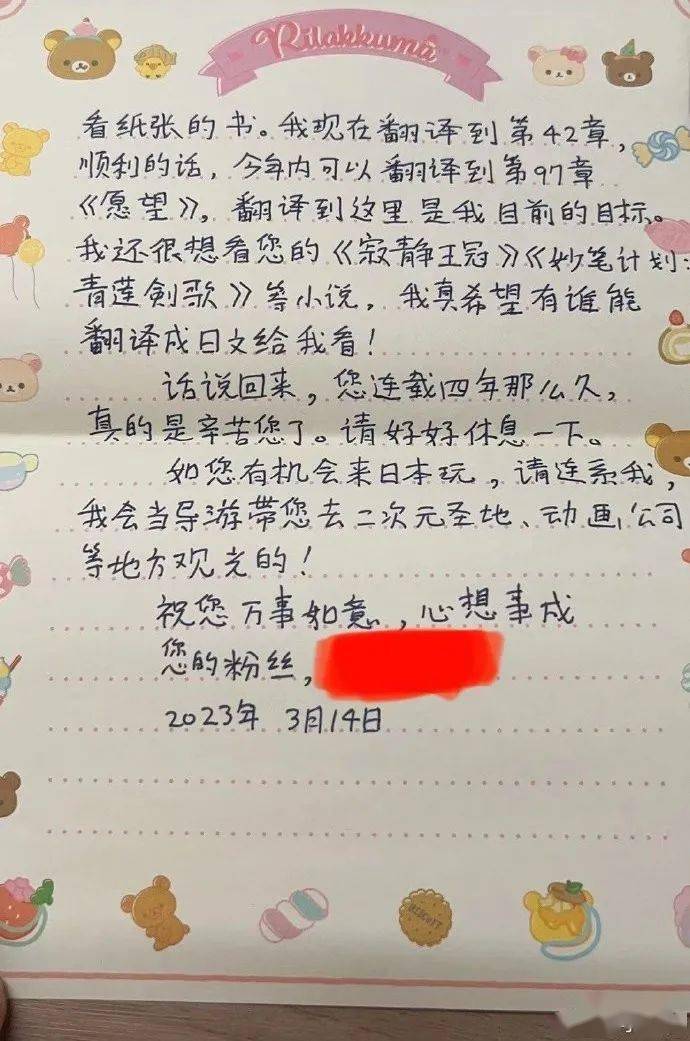 Rilakkuma
看纸张的书。我现在翻译到第42章，
顺利的话，今年内可以翻译到第97章
《愿望》。翻译到这里是我目前的目标。
我还很想看您的《寂静王冠》《妙笔计划：
青莲剣歌》等小说，我真希望有谁能
翻译成日文给我看！
话说回来，您连载四年那么久，
真的是辛苦您了。请好好休息一下。
如您有机会来日本玩，请连系我，
我会当导游带您去二次元圣地、动画公司
等地方观光的！
祝您万事如意，心想事成
您的粉丝，
2023年 3月14日
BISCUIT